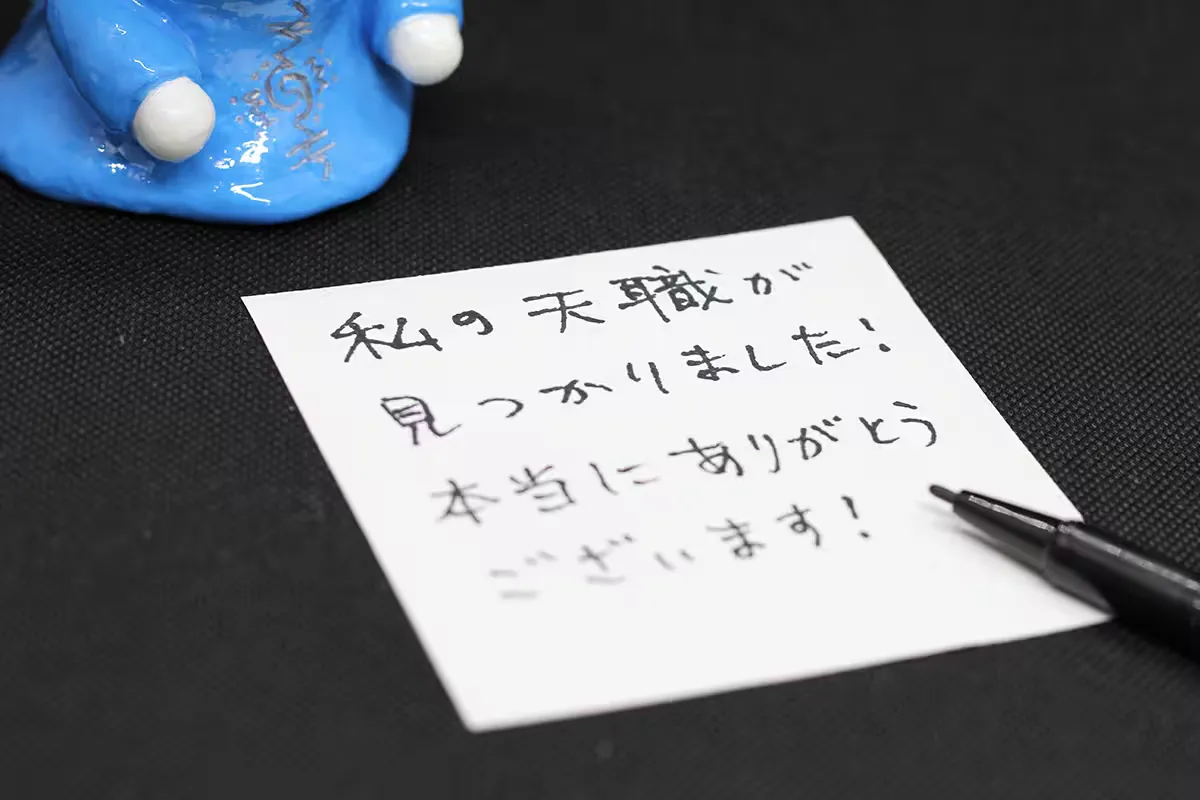 私の天職が
見つかりました!
本当にありがとう
ございます!